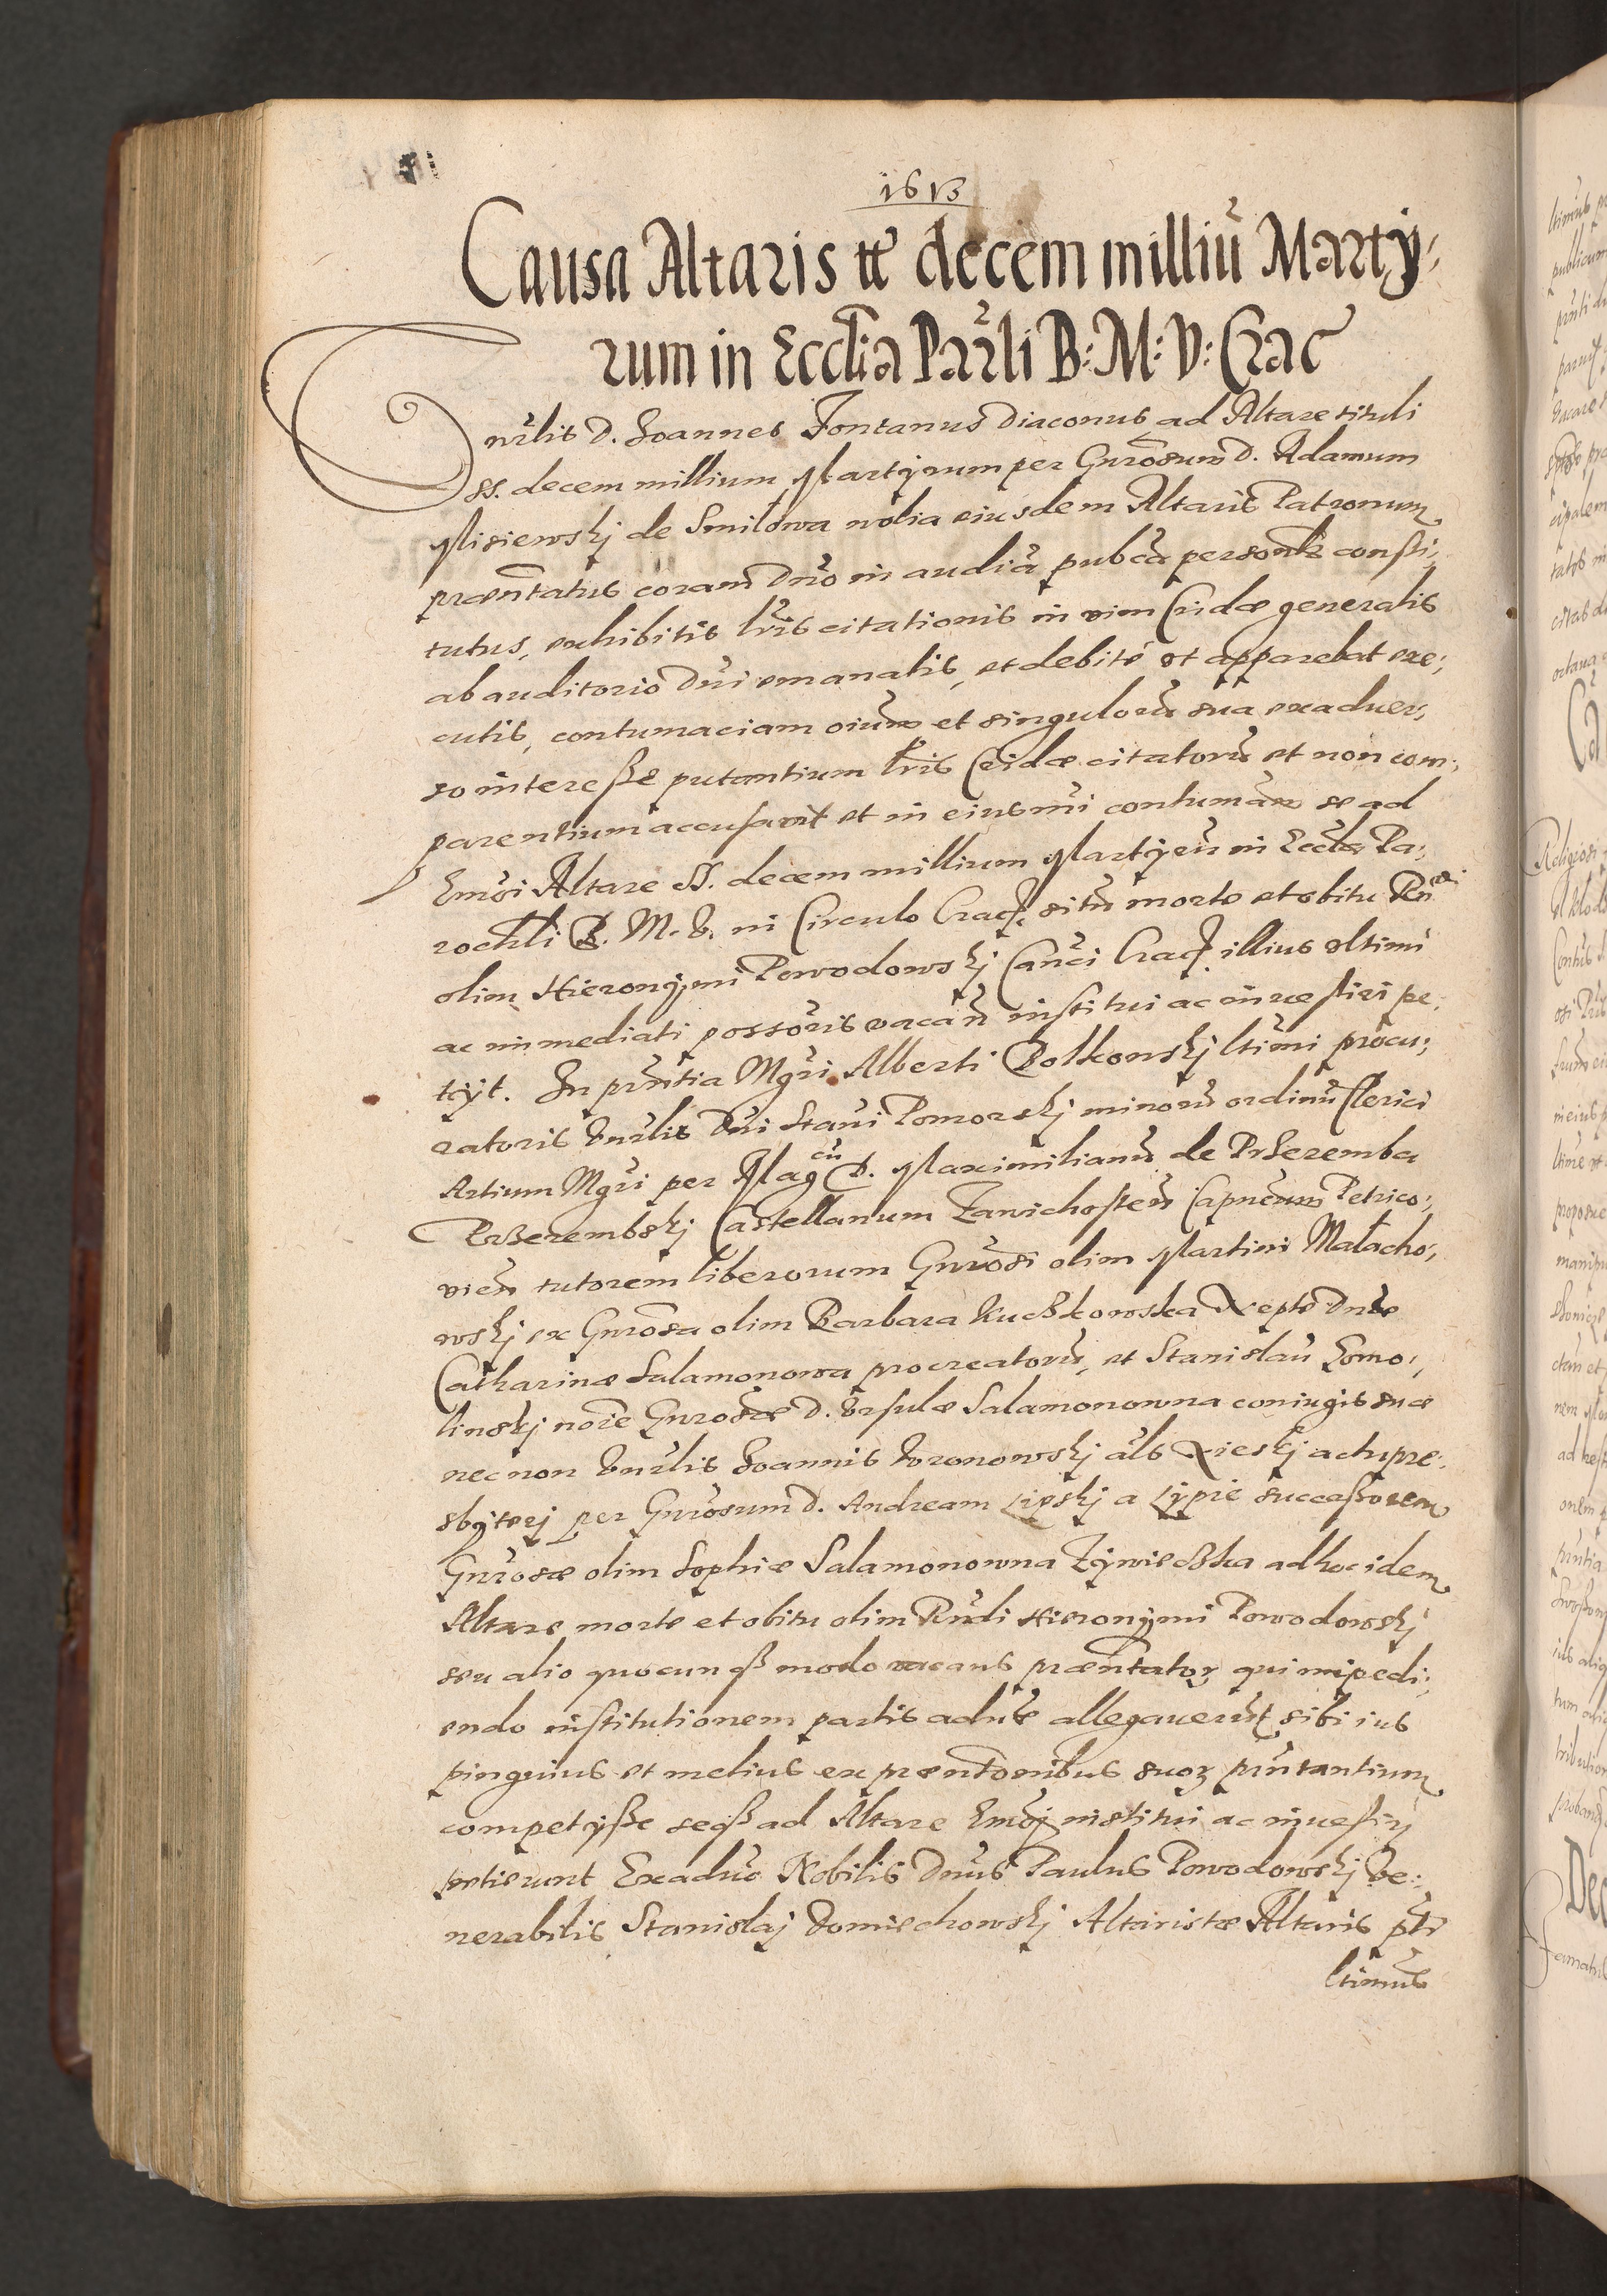 1613
Causa Altaris tt decem milliũ Marty:
rum in Ecclia Parli B: M: V: Crac
Vnrlis D. Joannes Fontanus Diaconus ad Altare tituli
SS. decem millium Martyrum per Gnrosum D. Adamum
Misiewskj de Smilowa eiusdem Altaris Patronum
præntatus coram Dno in audia pubca personlr consti:
tutus, exhibitis lris citationis in vim Cridæ generalis
ab auditorio Dni emanatis, et debite vt apparebat exe:
cutis, contumaciam oium et singulorũ sua exaduer:
so interesse putantium lris Cridæ citatorũ et non com:
parentium accusavit et in eiusmi contumam se ad
Altare SS. decem millium Martyrũ in Eccla Pa:
rochli B. M. V. in Circulo Crac. sitũ morte et obitu Rndi
olim Hieronymi Powodowskj Canci Crac. illius vltimi
ac immediati possoris vacañ institui ac inuestiri pe:
tijt. In prntia Mgri Alberti Bolkowskj ltimi procu:
ratoris Vnrlis Dni Stani Pomorskj minorũ ordinũ Clerici
Artium Mgri per Magcũ D. Maximilianũ de Przeremba
Przerembskj Castellanum Zawichosteñ Capneum Petrico:
vieñ tutorem liberorum Gnrosi olim Martini Malacho:
wskj ex Gnrosa olim Barbara Kuczkowska nepte Dnæ
Catharinæ Salamonowa procreatorũ, et Stanislaũ
linskj noie Gnrosæ D. Vrsulæ Salamonowna coniugis suæ
nec non Vnrlis Joannis als actu pre:
sbyterj per Gnrosum D. Andream Lipskj a Lypie successorem
Gnrosæ olim Sophiæ Salamonowna Zywieczka ad hoc idem
Altare morte et obitu olim Rndi Hieronymi Powodowskj
seu alio quocunqz modo vacans præntator qui impedi:
endo institutionem partis aduræ allegauerũt sibi ius
pinguius et melius ex præntonibus suorz prntantium
competysse seqz ad Altare institui ac inuestirj
petierunt Exaduo Nobilis Dnus Paulus Powodowskj Ve:
nerabilis Stanislaj Domiechowskj Altaristæ Altaris pti
ltimus